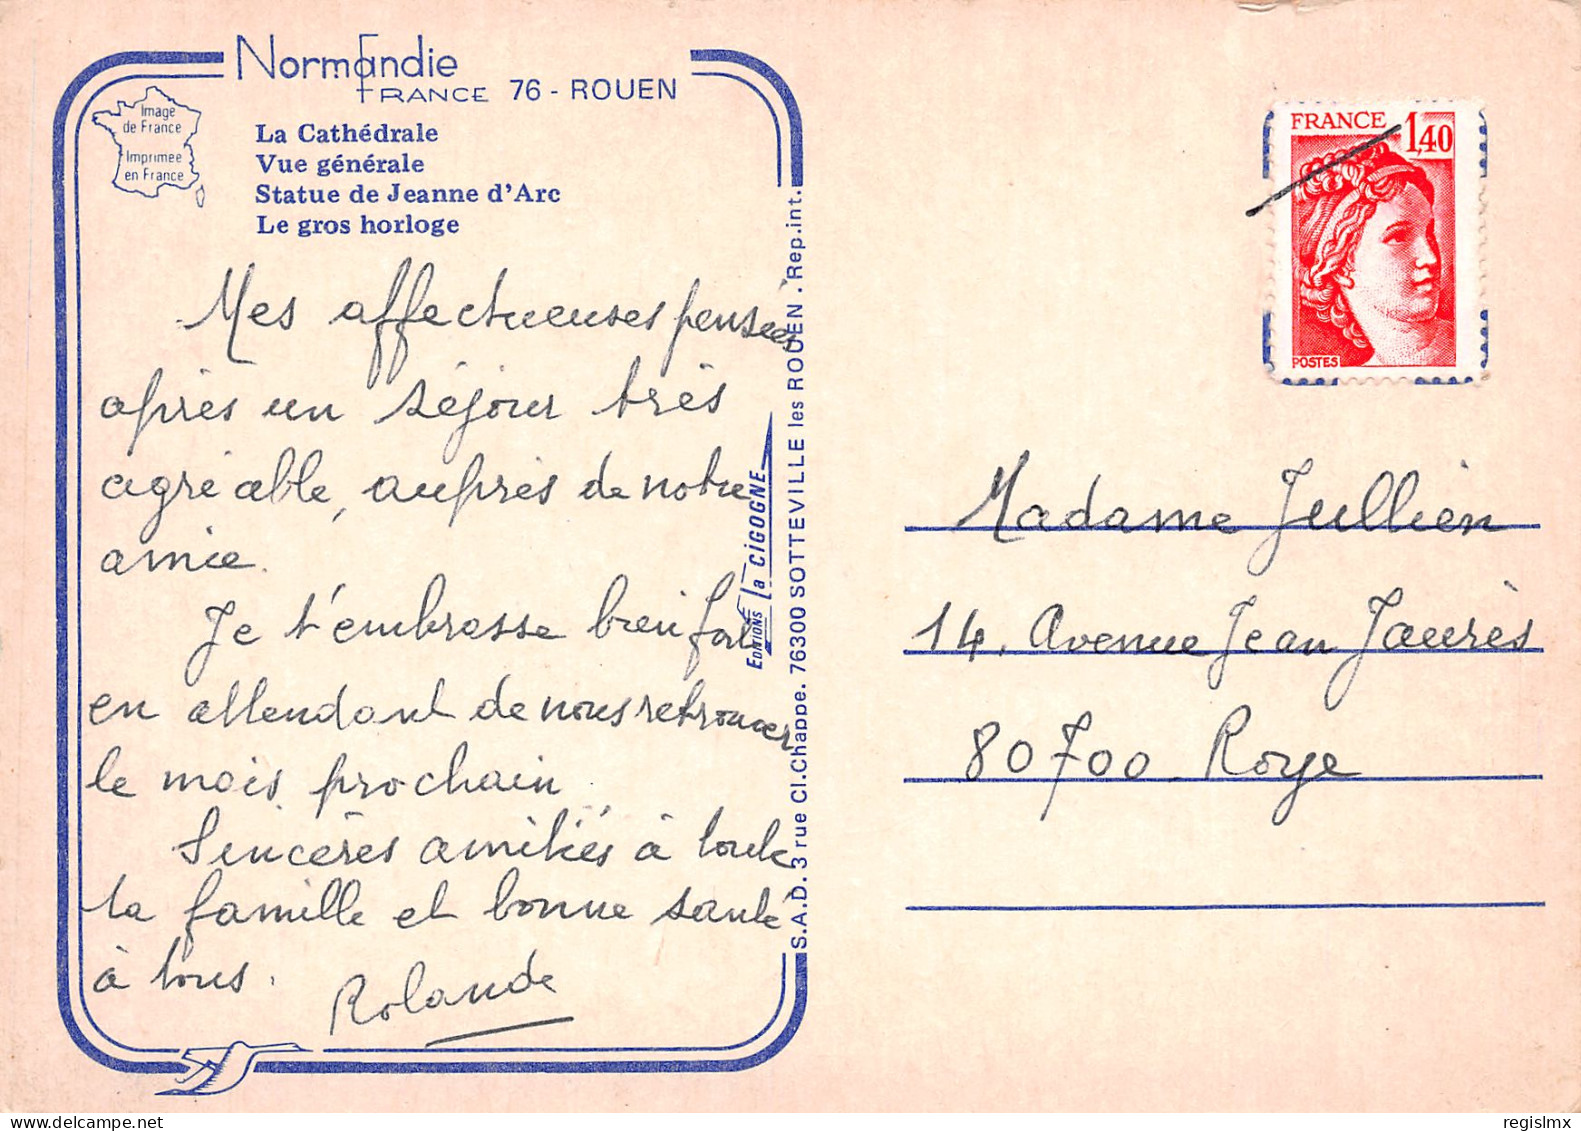 Normandie
FRANCE 76 - ROUEN
Image
de France
Imprimée
en France
La Cathédrale
Vue générale
Statue de Jeanne d'Arc
Le gros horloge
Mes affectueuses pensées
après un séjour très
agréable, auprès de notre
amie.
Je t'embrasse bien fort
en attendant de nous retrouver
le mois prochain.
Sincères amitiés à toute
la famille et bonne santé
à tous.
Rolande
EDITIONS La CIGOGNE
S.A.D. 3 rue Cl.Chappe. 76300 SOTTEVILLE les ROUEN . Rep.int.
FRANCE 1,40
POSTES
Madame Jullien
14, Avenue Jean Jaurès
80700 - Roye
regislmx
delcampe.net